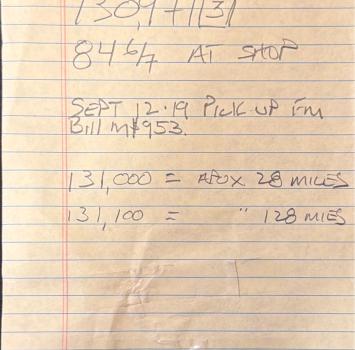 84 6/7 AT SHOP
SEPT 12.19 PICK UP Fm
Bill M $953.
131,000 = APOX 28 MILES
131,100 = " 128 MIES